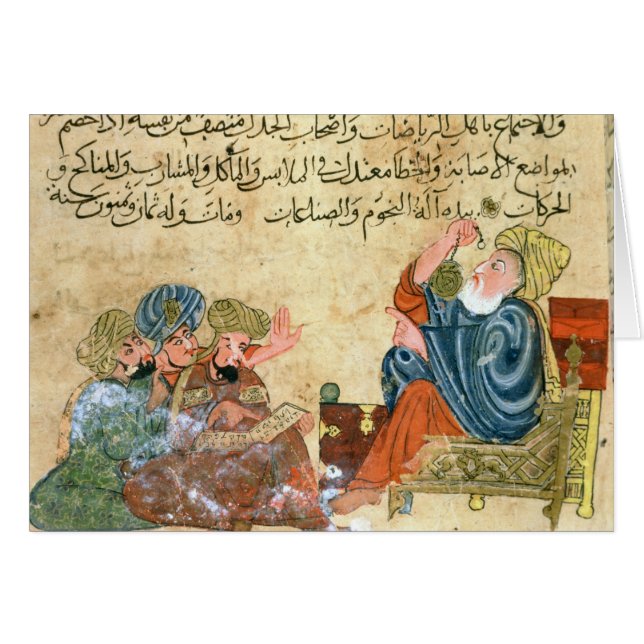 والاجتماع باهل الرياضات واصحاب الجدل منصف من نفسه اذا خصم
لمواضع الاصابة والخطا معتدل في الملابس والمآكل والمشارب والمناكح و
الحركات بيده آلة النجوم والصناعات ومات وله ثمان وستون سنة